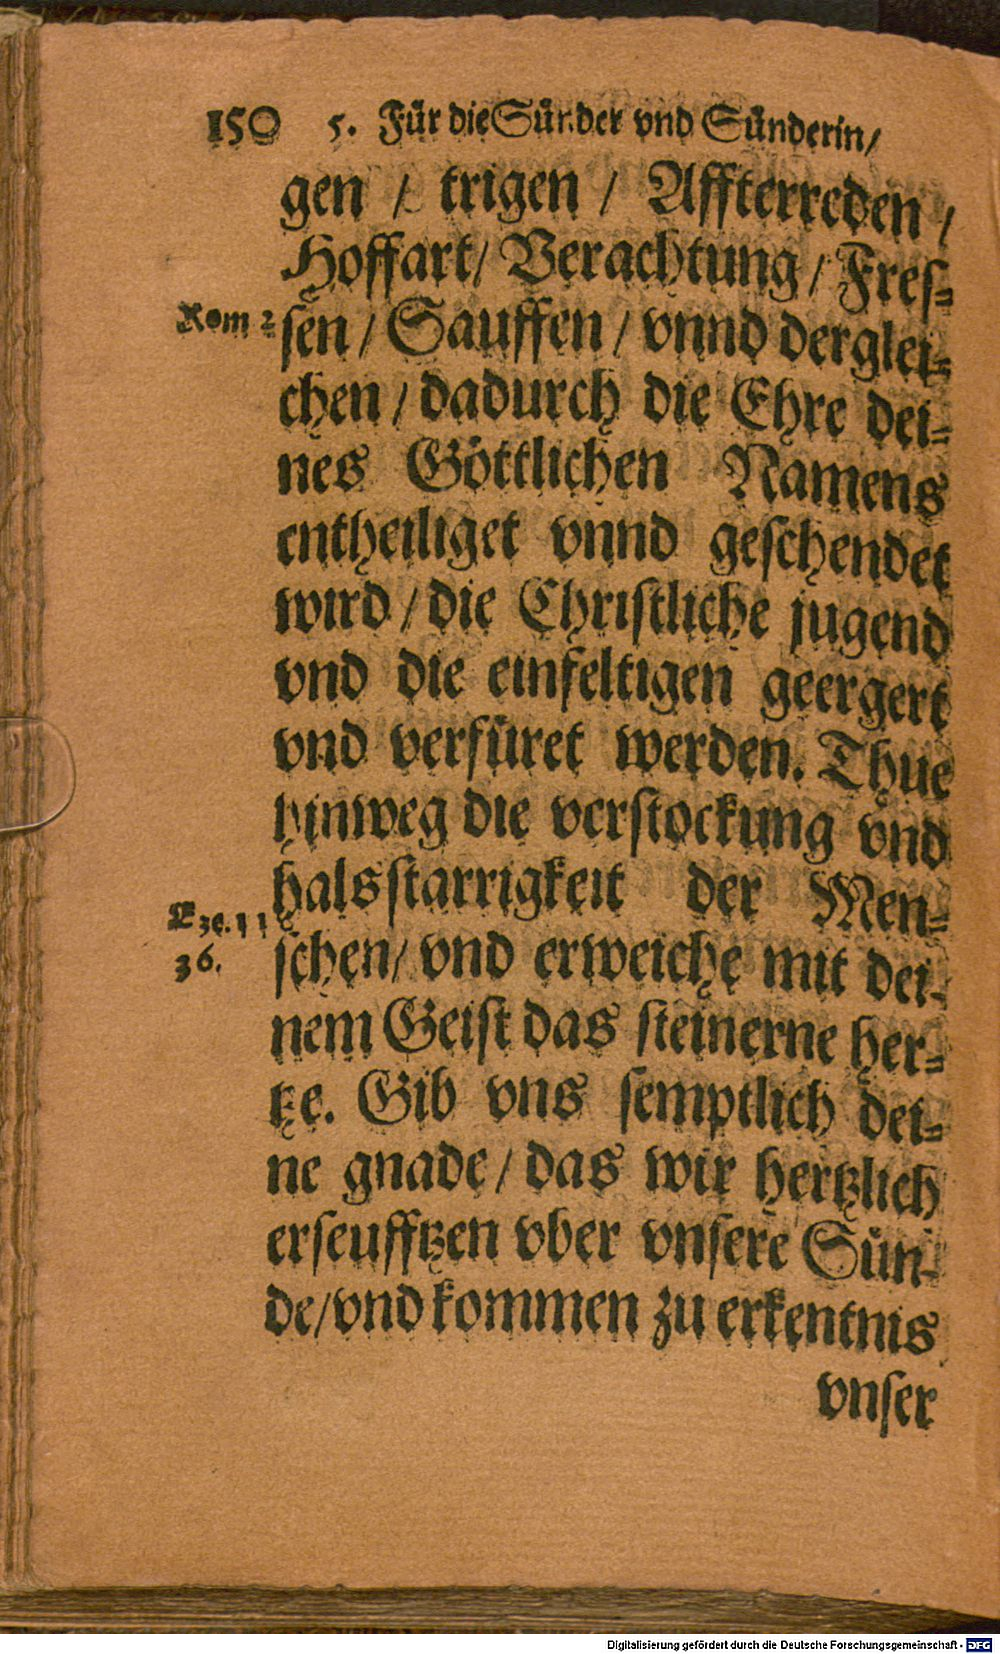 150 5. Für die Sünder vnd Sünderin /
gen / trigen / Affterreden /
Hoffart / Verachtung / Fres⸗
Rom 2
sen / Sauffen / vnnd derglei⸗
chen / dadurch die Ehre dei⸗
nes Göttlichen Namens
entheiliget vnnd geschendet
wird / die Christliche jugend
vnd die einfeltigen geergert
vnd verfüret werden. Thue
hinweg die verstockung vnd
halsstarrigkeit der Men⸗
Eze. 11
36.
schen / vnd erweiche mit dei⸗
nem Geist das steinerne her⸗
tze. Gib vns semptlich dei⸗
ne gnade / das wir hertzlich
erseufftzen vber vnsere Sün⸗
de / vnd kommen zu erkentnis
vnser
Digitalisierung gefördert durch die Deutsche Forschungsgemeinschaft - DFG